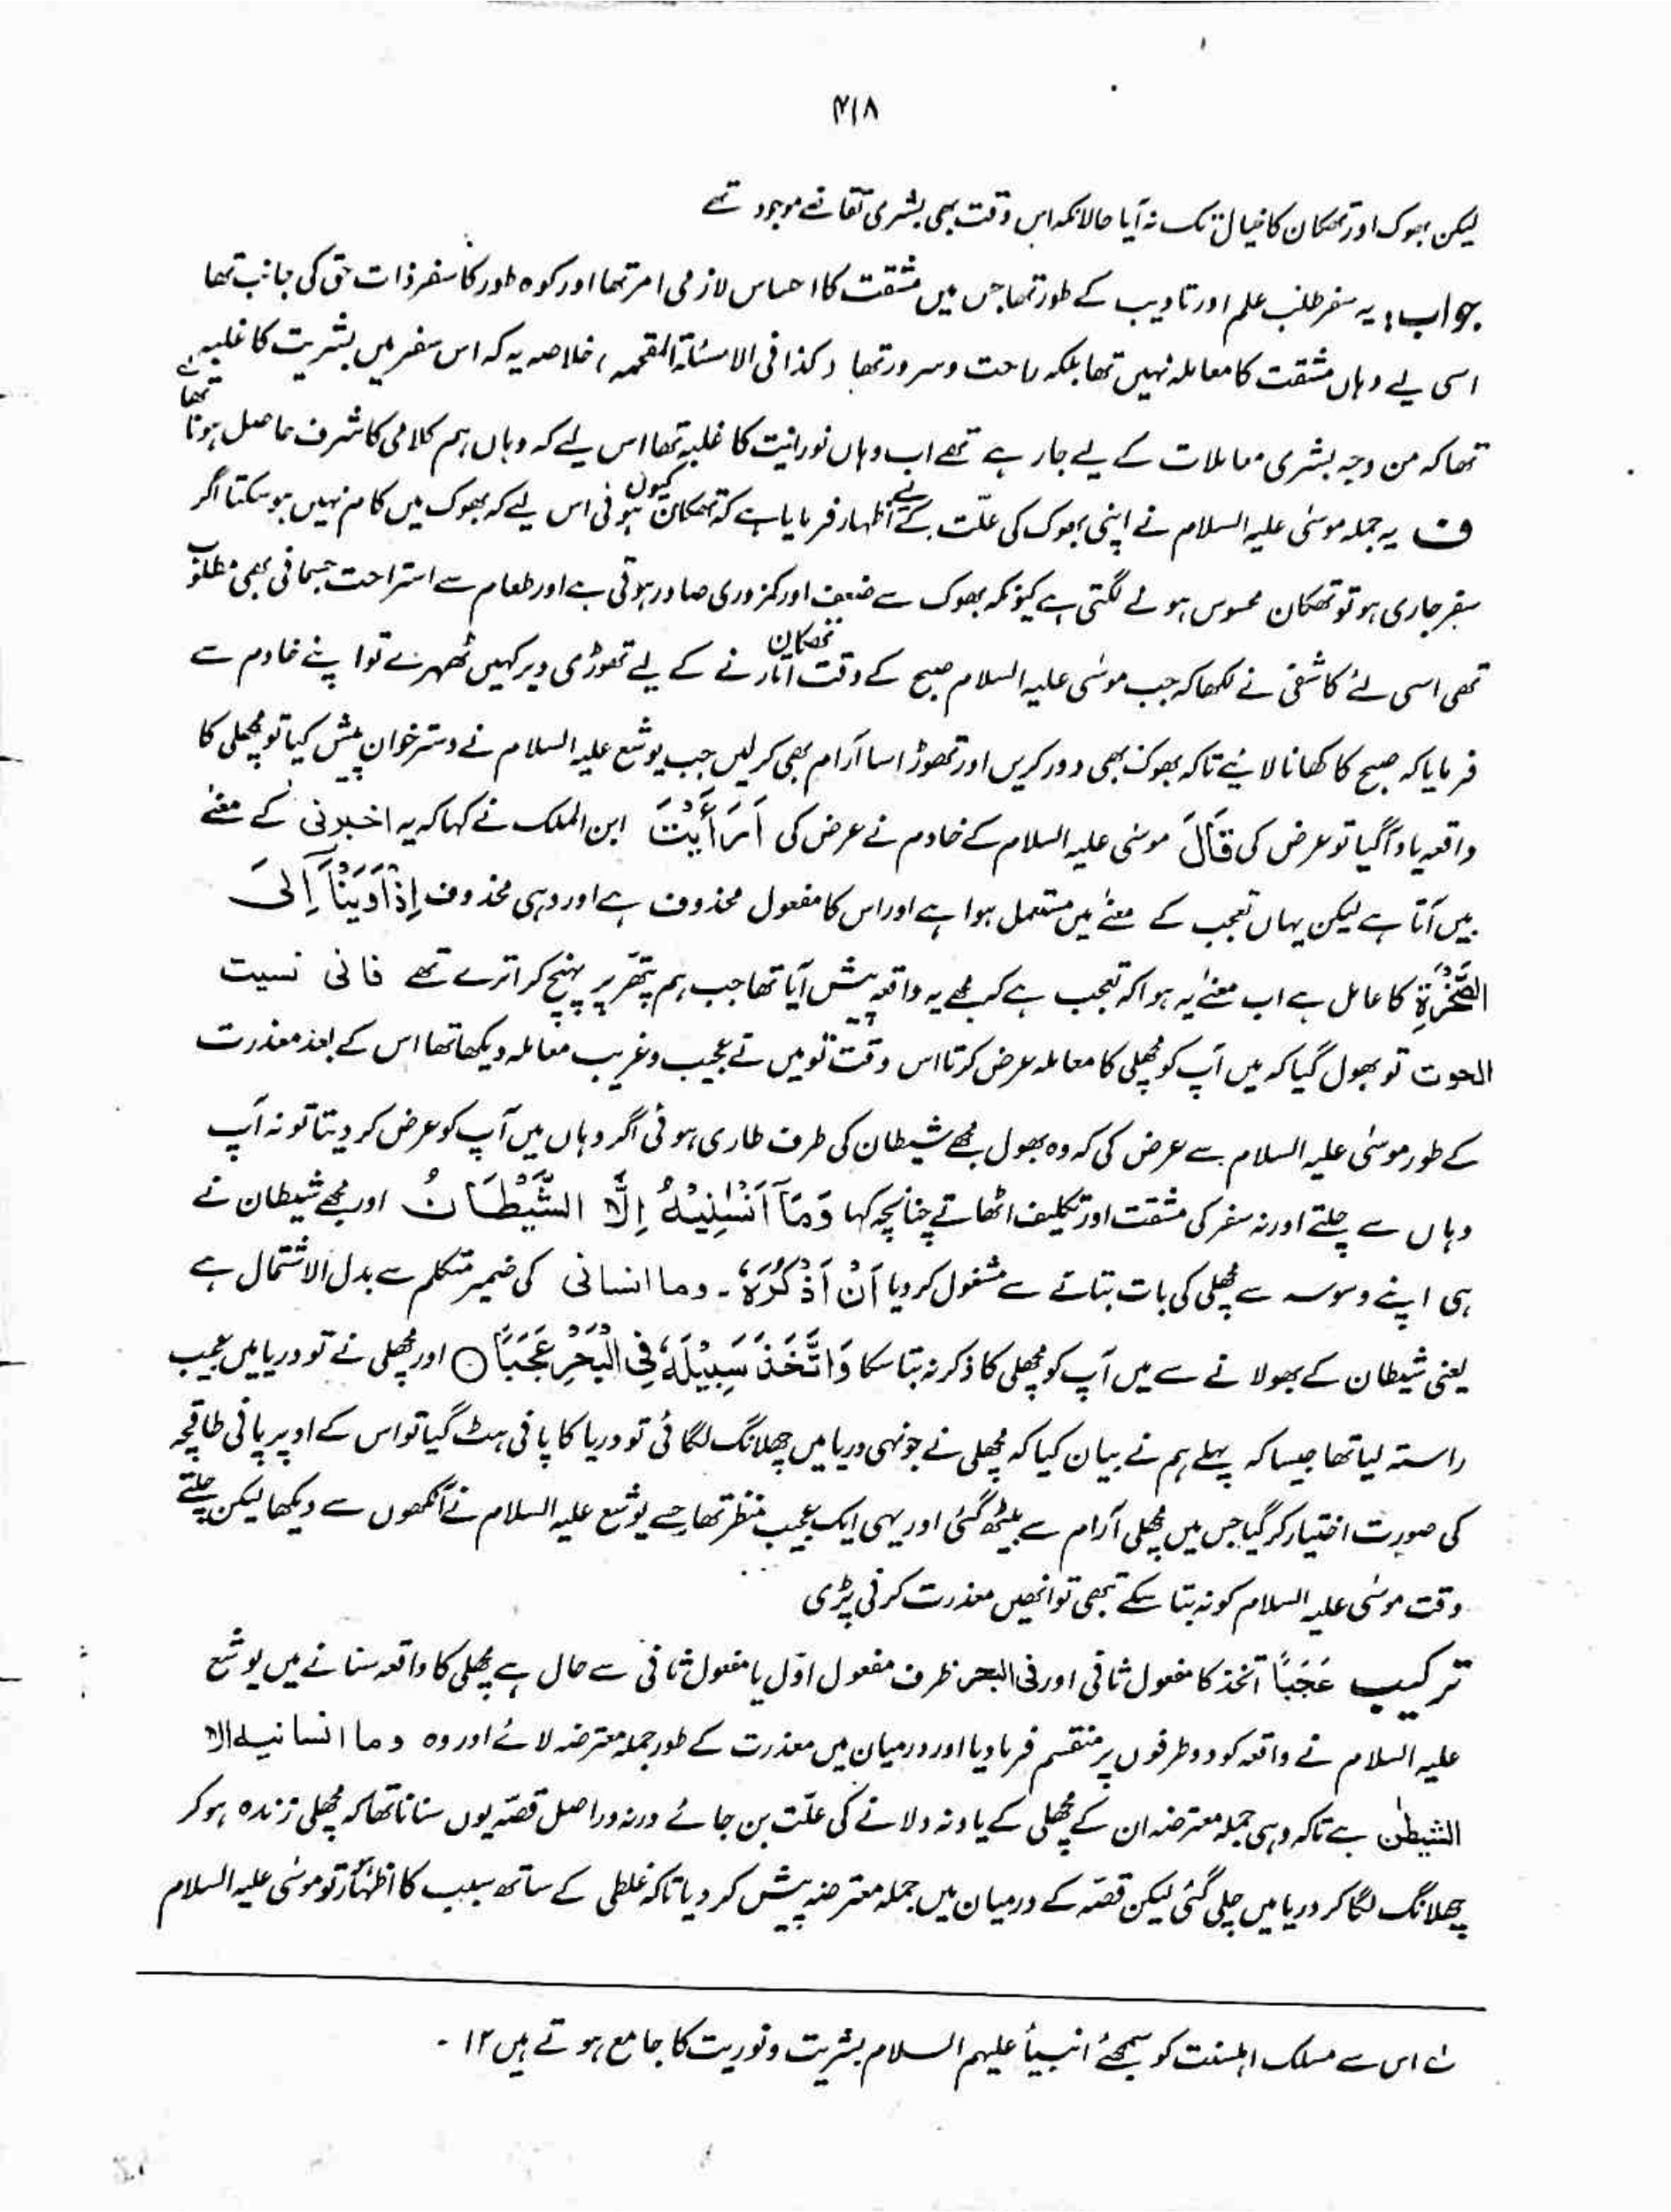 ۴۱۸
لیکن بھوک اور تھکان کا خیال تک نہ آیا حالانکہ اس وقت بھی بشری تقاضے موجود تھے
جواب: یہ سفر طلب علم اور تادیب کے طور تھا جس میں مشقت کا احساس لازمی امر تھا اور کوہ طور کا سفر ذات حق کی جانب تھا
اسی لیے وہاں مشقت کا معاملہ نہیں تھا بلکہ راحت و سرور تھا (کذا فی الاسئلۃ المقحمہ) خلاصہ یہ کہ اس سفر میں بشریت کا غلبہ
تھا کہ من وجہ بشری معاملات کے لیے جا رہے تھے اب وہاں نورانیت کا غلبہ تھا اس لیے کہ وہاں ہم کلامی کا شرف حاصل ہونا تھا
ف یہ جملہ موسٰی علیہ السلام نے اپنی بھوک کی علّت کے لیے اظہار فرمایا ہے کہ تھکان کیوں ہوئی اس لیے کہ بھوک میں کام نہیں ہو سکتا اگر
سفر جاری ہو تو تھکان محسوس ہونے لگتی ہے کیونکہ بھوک سے ضعف اور کمزوری صادر ہوتی ہے اور طعام سے استراحت جسمانی بھی مطلوب
تھی اسی لئے کاشفی نے لکھا کہ جب موسٰی علیہ السلام صبح کے وقت تھکان اتارنے کے لیے تھوڑی دیر کہیں ٹھہرے تو اپنے خادم سے
فرمایا کہ صبح کا کھانا لائیے تاکہ بھوک بھی دور کریں اور تھوڑا سا آرام بھی کرلیں جب یوشع علیہ السلام نے دسترخوان پیش کیا تو مچھلی کا
واقعہ یاد آگیا تو عرض کی قَالَ موسٰی علیہ السلام کے خادم نے عرض کی اَرَاَیْتَ ابن الملک نے کہا کہ یہ اخبرنی کے معنے
میں آتا ہے لیکن یہاں تعجب کے معنٰے میں مستعمل ہوا ہے اور اس کا مفعول محذوف ہے اور وہی محذوف اِذْ اَوَیْنَآ اِلَی
الصَّخْرَۃِ کا عامل ہے اب معنٰے یہ ہوا کہ تعجب ہے کہ مجھے یہ واقعہ پیش آیا تھا جب ہم پتھر پر پہنچ کر اترے تھے فانی نسیت
الحوت تو بھول گیا کہ میں آپ کو مچھلی کا معاملہ عرض کرتا اس وقت تو میں نے عجیب و غریب معاملہ دیکھا تھا اس کے بعد معذرت
کے طور موسٰی علیہ السلام سے عرض کی کہ وہ بھول مجھے شیطان کی طرف طاری ہوئی اگر وہاں میں آپ کو عرض کر دیتا تو نہ آپ
وہاں سے چلتے اور نہ سفر کی مشقت اور تکلیف اٹھاتے چنانچہ کہا وَمَآ اَنْسٰنِیْہُ اِلَّا الشَّیْطَانُ اور مجھے شیطان نے
ہی اپنے وسوسہ سے مچھلی کی بات بتانے سے مشغول کر دیا اَنْ اَذْکُرَہٗ۔ وما انسانی کی ضمیر متکلم سے بدل الاشتمال ہے
یعنی شیطان کے بھولانے سے میں آپ کو مچھلی کا ذکر نہ بتا سکا وَاتَّخَذَ سَبِیْلَہٗ فِی الْبَحْرِ عَجَبًا ○ اور مچھلی نے تو دریا میں عجیب
راستہ لیا تھا جیسا کہ پہلے ہم نے بیان کیا کہ مچھلی نے جونہی دریا میں چھلانگ لگائی تو دریا کا پانی ہٹ گیا تو اس کے اوپر پانی طاقچہ
کی صورت اختیار کر گیا جس میں مچھلی آرام سے بیٹھ گئی اور یہی ایک عجیب منظر تھا جسے یوشع علیہ السلام نے آنکھوں سے دیکھا لیکن چلتے
وقت موسٰی علیہ السلام کو نہ بتا سکے تبھی تو انھیں معذرت کرنی پڑی
ترکیب عَجَبًا اتخذ کا مفعول ثانی اور فی البحر ظرف مفعول اوّل یا مفعول ثانی سے حال ہے مچھلی کا واقعہ سنانے میں یوشع
علیہ السلام نے واقعہ کو دو طرفوں پر منقسم فرما دیا اور درمیان میں معذرت کے طور جملہ معترضہ لائے اور وہ وما انسانیہ الا
الشیطٰن ہے تاکہ وہی جملہ معترضہ ان کے مچھلی کے یاد نہ دلانے کی علّت بن جائے ورنہ دراصل قصّہ یوں سنانا تھا کہ مچھلی زندہ ہو کر
چھلانگ لگا کر دریا میں چلی گئی لیکن قصّہ کے درمیان میں جملہ معترضہ پیش کر دیا تاکہ غلطی کے ساتھ سبب کا اظہار ہو تو موسٰی علیہ السلام
اس سے مسلک اہلسنت کو سمجھئے انبیأ علیہم السلام بشریت و نوریت کا جامع ہوتے ہیں ۱۲ -